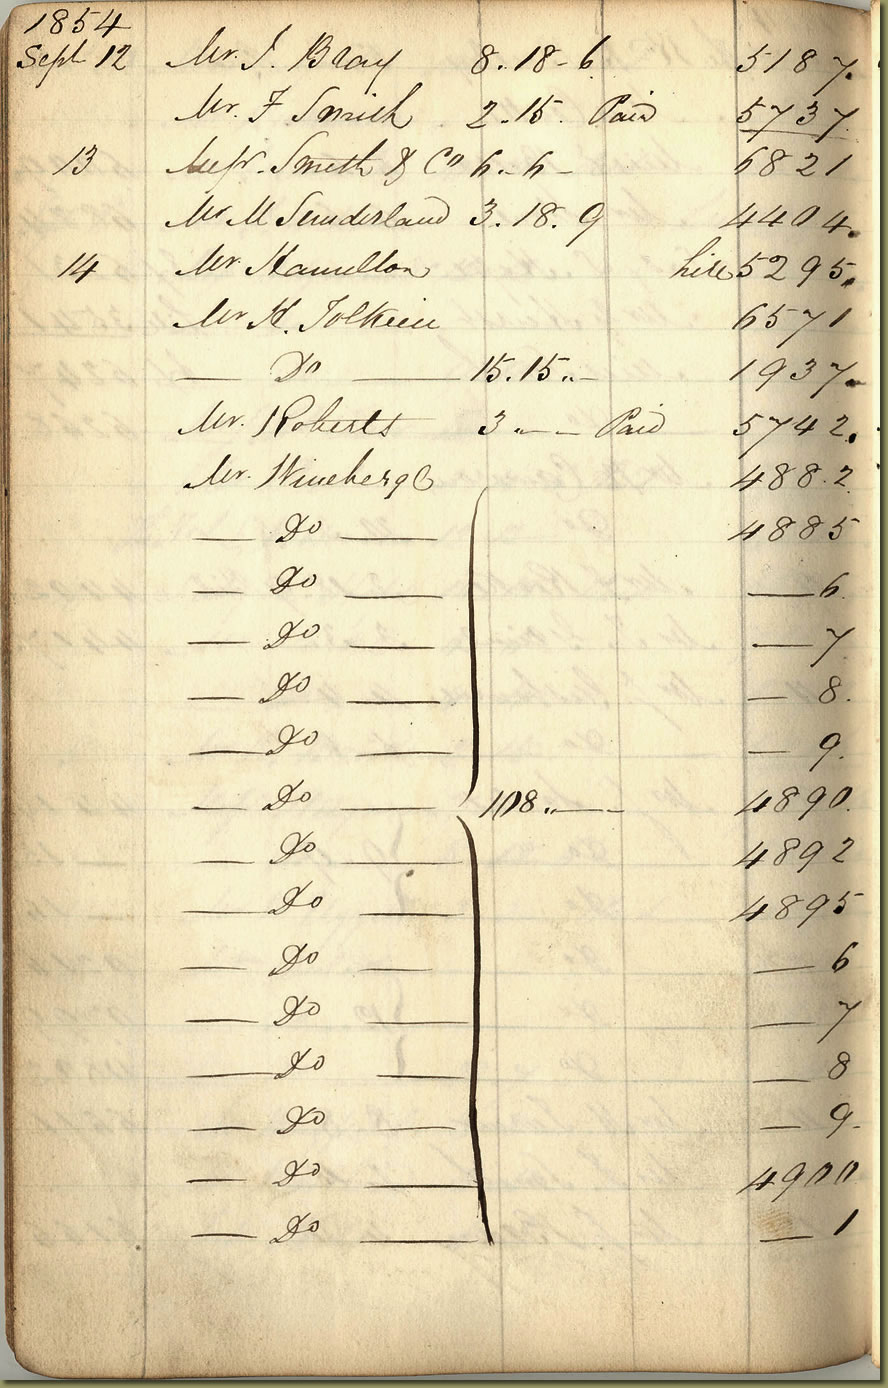 1854
Sept 12 Mr. J. Bray 8.. 18 - 6 5187.
Mr. F Smith 2.. 15. Paid 5737.
13 Messrs. Smith & Co 6.. 6 - 6821
Mr M Sunderland 3. 18. 9 4404.
14 Mr Hamilton hire 5295.
Mr H. Tolkien 6571
— Do — 15. 15 .. - 1937.
Mr. Roberts 3 .. - - Paid 5742.
Mr. Wineberg 4882.
— Do — 4885
— Do — — 6.
— Do — — 7
— Do — — 8.
— Do — — 9.
— Do — 108 .. — 4890.
— Do — 4892
— Do — 4895
— Do — — 6
— Do — — 7
— Do — — 8
— Do — — 9.
— Do — 4900
— Do — — 1